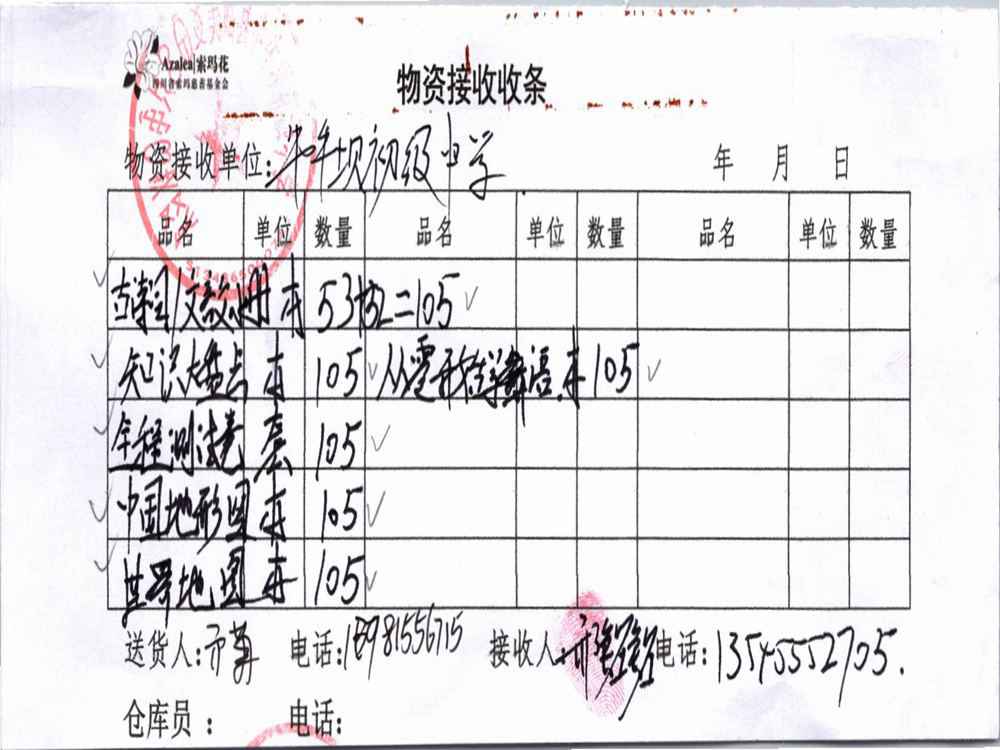 Azalea 索玛花
四川省索玛慈善基金会
物资接收收条
物资接收单位: 牛牛坝初级中学 年 月 日
品名 单位 数量 品名 单位 数量 品名 单位 数量
本 53 105
知识大盘点 本 105 从零形 本 105
全程测试卷 套 105
中国地形图 本 105
世界地图 本 105
送货人: 电话: 18981556715 接收人 电话: 13545552705.
仓库员 : 电话: